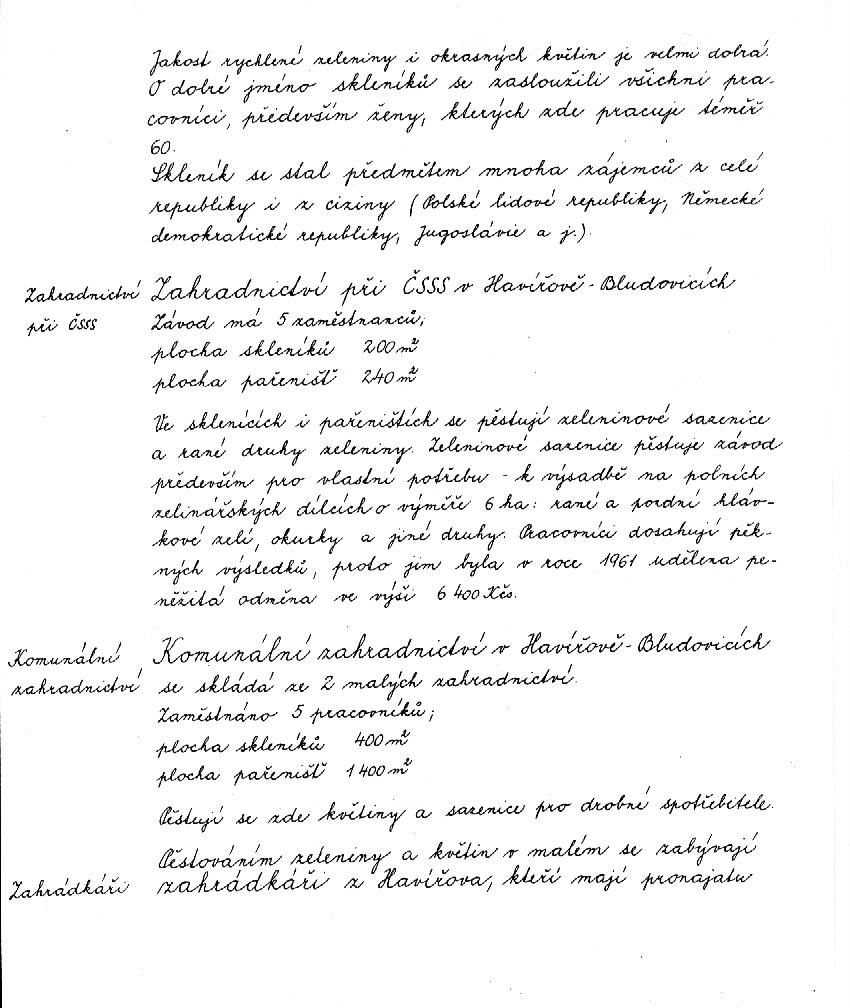 Jakost rychlené zeleniny i okrasných květin je velmi dobrá.
O dobré jméno skleníků se zasloužili všichni pra-
covníci, především ženy, kterých zde pracuje téměř
60.
Skleník se stal předmětem mnoha zájemců z celé
republiky i z ciziny (Polské lidové republiky, Německé
demokratické republiky, Jugoslávie a j.).
Zahradnictví
při ČSSS
Zahradnictví při ČSSS v Havířově-Bludovicích
Závod má 5 zaměstnanců;
plocha skleníků 200 m²
plocha pařenišť 240 m²
Ve sklenících i pařeništích se pěstují zeleninové sazenice
a rané druhy zeleniny. Zeleninové sazenice pěstuje závod
především pro vlastní potřebu - k výsadbě na polních
zelinářských dílcích o výměře 6 ha: rané a pozdní hláv-
kové zelí, okurky a jiné druhy. Pracovníci dosahují pěk-
ných výsledků, proto jim byla v roce 1961 udělena pe-
něžitá odměna ve výši 6 400 Kčs.
Komunální
zahradnictví
Komunální zahradnictví v Havířově-Bludovicích
se skládá ze 2 malých zahradnictví.
Zaměstnáno 5 pracovníků;
plocha skleníků 400 m²
plocha pařenišť 1 400 m²
Pěstují se zde květiny a sazenice pro drobné spotřebitele.
Pěstováním zeleniny a květin v malém se zabývají
Zahrádkáři
zahrádkáři z Havířova, kteří mají pronajatu